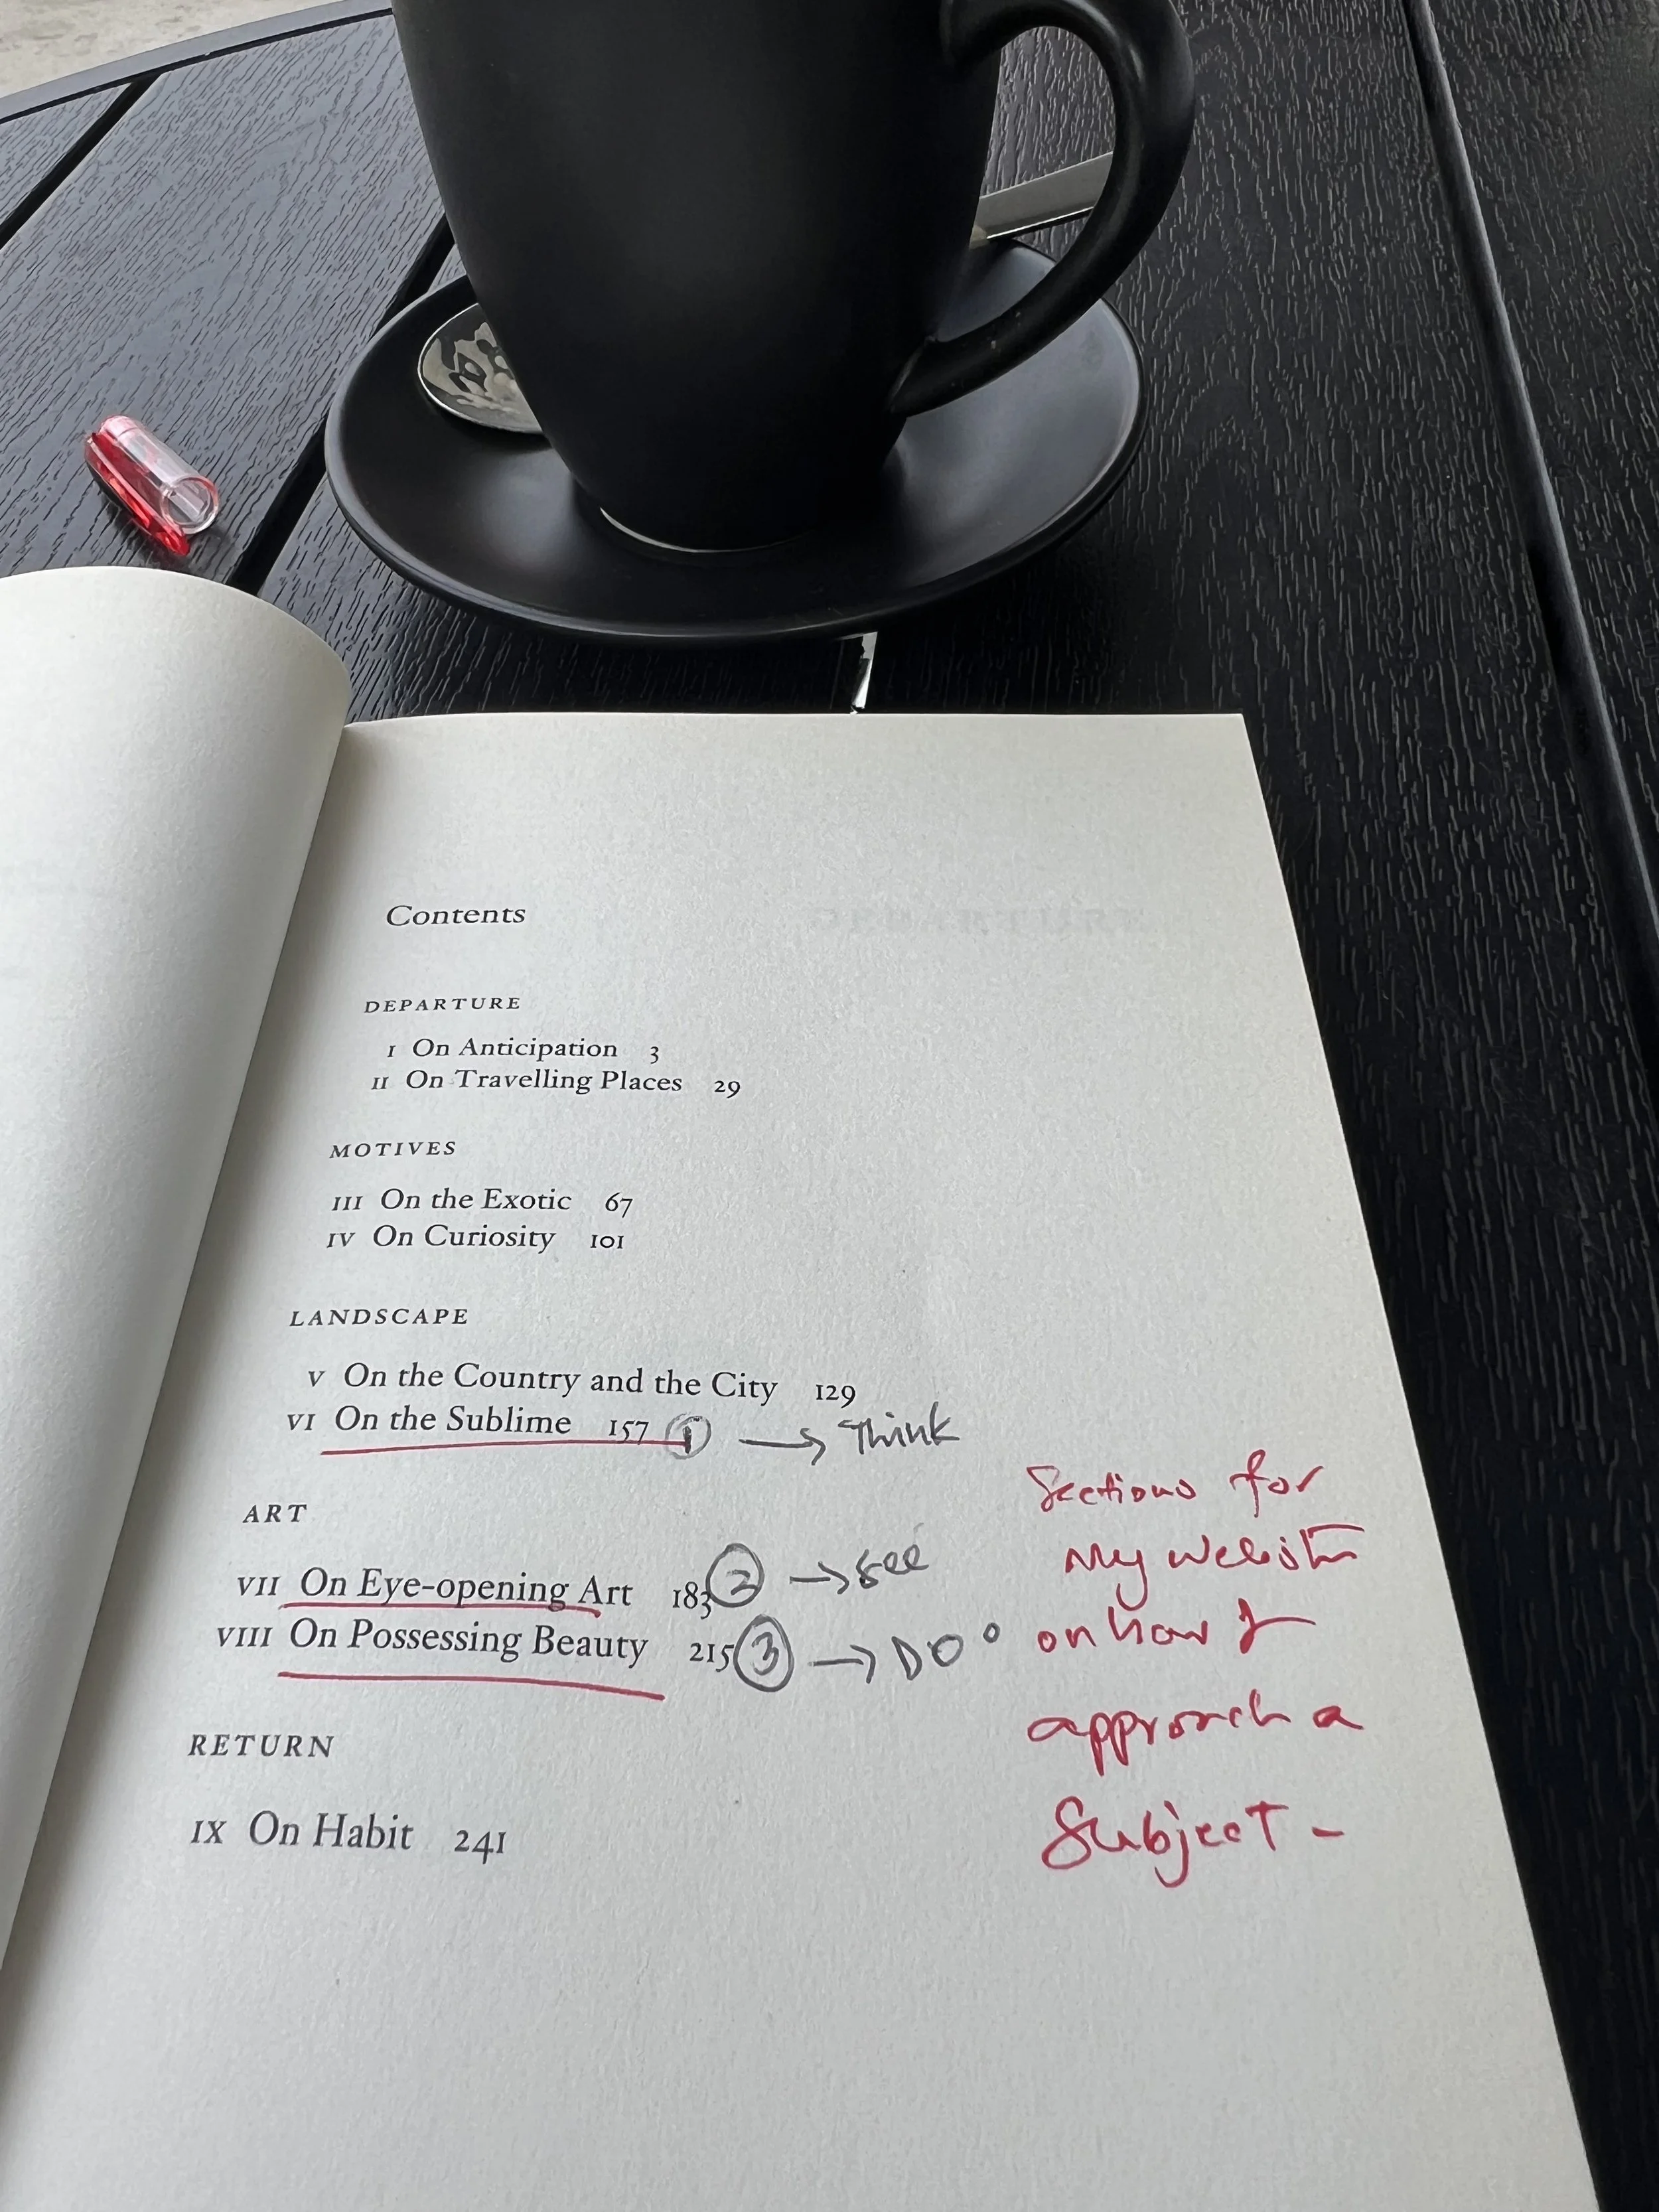 Contents
DEPARTURE
I On Anticipation 3
II On Travelling Places 29
MOTIVES
III On the Exotic 67
IV On Curiosity 101
LANDSCAPE
V On the Country and the City 129
VI On the Sublime 157 1 → Think
ART
VII On Eye-opening Art 183 2 → See
VIII On Possessing Beauty 215 3 → DO
RETURN
IX On Habit 241
Sections for
My website
on how I
approach a
Subject -